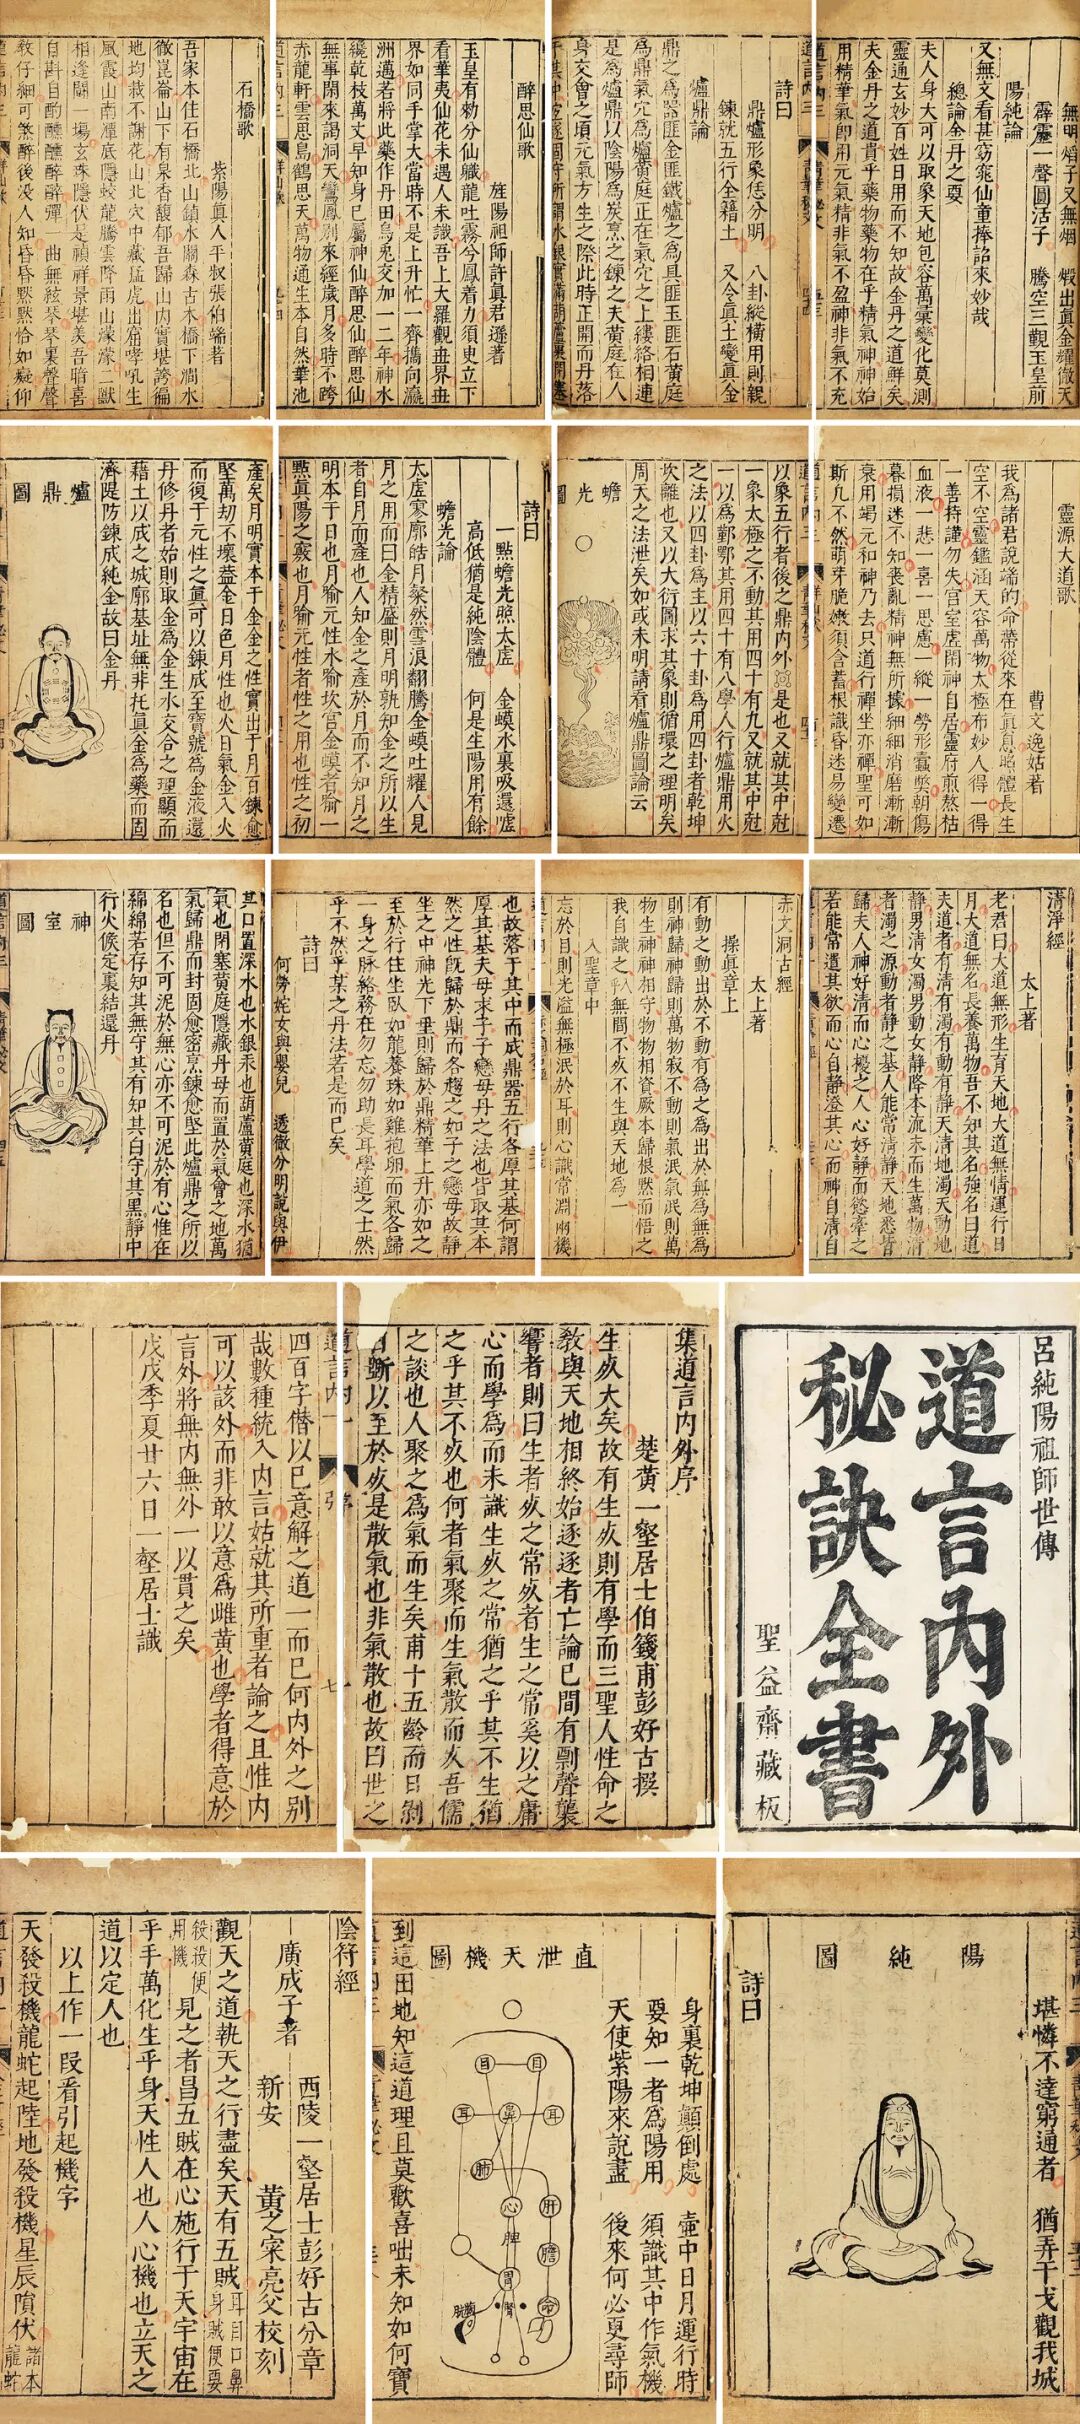 無明熖子又無烟 煅出真金耀徹天
霹靂一聲圓活子 騰空三觀玉皇前
陽純論
又無文看甚窈窕仙童捧詔來妙哉
總論金丹之要
夫人身大可以取象天地包容萬彙變化莫測
靈通玄妙百姓日用而不知故金丹之道鮮矣
夫金丹之道貴乎藥物藥物在乎精氣神神始
用精華氣卽用元氣精非氣不盈神非氣不充
詩曰
鼎爐形象恁分明 八卦縱橫用則親
鍊就五行全藉土 又令真土變真金
爐鼎論
鼎之為器匪金匪鐵爐之為具匪玉匪石黃庭
為鼎氣穴為爐黃庭正在氣穴之上縷絡相連
是為爐鼎以陰陽為炭烹之鍊之夫黃庭在人
身交會之頃元氣方生之際此時正開而丹落
醉思仙歌
旌陽祖師許真君遜著
玉皇有勑分仙軄龍吐霧兮鳳着力須臾立下
看華夷仙花未遇人未識吾上大羅觀世界世
界如同手掌大當時不是上升忙一齊擕向瀛
洲邁若將此藥作丹田烏兎交加一二年神水
繞乾枝萬丈早知身已屬神仙醉思仙醉思仙
無事閑來謁洞天鸞鳳別來經歲月多時不跨
赤龍軒雲思島鶴思天萬物通生本自然華池
石橋歌
紫陽真人平叔張伯端著
吾家本住石橋北山鎮水關森古木橋下澗水
徹崑崙山下有泉香馥郁吾歸山內實堪誇徧
地均栽不謝花山北穴中藏猛虎出窟哮吼生
風霞山南潭底隱蛟龍騰雲降雨山濛濛二獸
相逢鬪一塲玄珠隱伏是禎祥景堪美吾暗喜
自斟自酌醺醺醉醉彈一曲無絃琴琴裏聲聲
敎仔細可煞醉後没人知昏昏默默恰如癡仰
靈源大道歌
曹文逸姑著
我為諸君說端的命蒂從來在真息炤體長生
空不空靈鑑涵天容萬物太極布妙人得一得
一善持謹勿失宮室虛閑神自居靈府煎熬枯
血液一悲一喜一思慮一縱一勞形蠧獘朝傷
暮損迷不知喪亂精神無所據細細消磨漸漸
衰用竭元和神乃去只道行禪坐亦禪聖可如
斯凢不然萌芽脆嫩須含蓄根識昏迷易變遷
以象五行者後之鼎內外是也又就其中尅
一象太極之不動其用四十有九又就其中尅
一以為鄞鄂其用四十有八學人行爐鼎用火
之法以四卦為主以六十卦為用四卦者乾坤
坎離也又以大衍圖求其象則循環之理明矣
周天之法泄矣如或未明請看爐鼎圖論云
蟾光圖
詩曰
一點蟾光照太虛 金蟆水裏吸還噓
高低猶是純陰體 何是生陽用有餘
蟾光論
太虛寥廓皓月粲然雪浪翻騰金蟆吐耀人見
月之用而曰金精盛則月明孰知金之所以生
者自月而產也人知金之產於月而不知月之
明本于日也月喻元性水喻坎宫金蟆者喻一
點真陽之竅也月喻元性者性之用也性之初
產矣月明實本于金金之性實出于月百鍊愈
堅萬刼不壞蓋金日色月性也火日氣金入火
而復于元性之真可以鍊成至寶號為金液還
丹修丹者始則取金為金生水交合之理顯而
藉土以成之城廓基址無非托真金為藥而固
濟隄防鍊成純金故曰金丹
爐鼎圖
清淨經
太上著
老君曰大道無形生育天地大道無情運行日
月大道無名長養萬物吾不知其名強名曰道
夫道者有清有濁有動有靜天清地濁天動地
靜男清女濁男動女靜降本流末而生萬物清
者濁之源動者靜之基人能常清靜天地悉皆
歸夫人神好清而心擾之人心好靜而慾牽之
若能常遣其欲而心自静澄其心而神自清自
赤文洞古經
太上著
操真章上
有動之動出於不動有為之為出於無為無為
則神歸神歸則萬物寂不動則氣泯氣泯則萬
物生神神相守物物相資厥本歸根默而悟之
我自識之入無間不灰不生與天地為一
入聖章中
忘於目則光溢無極泯於耳則心識常淵兩機
也故落于其中而成鼎器五行各厚其基何謂
厚其基夫母求子子戀母丹之法也皆取其本
然之性旣歸於鼎而各趨之如子之戀母故靜
坐之中神光下垂則歸於鼎精華上升亦如之
至於行住坐臥如龍養珠如雞抱卵而氣各歸
一身之脉絡務在勿忘勿助長耳學道之士然
乎不然乎某之丹法若是而已矣
詩曰
何勞姹女與嬰兒 透徹分明說與伊
其口置深水也水銀汞也葫蘆黃庭也深水循
氣也閉塞黃庭隱藏丹母而置於氣會之地萬
氣歸鼎而封固愈密烹鍊愈堅此爐鼎之所以
名也但不可泥於無心亦不可泥於有心惟在
綿綿若存知其無守其有知其白守其黑静中
行火候定裏結還丹
神室圖
呂純陽祖師世傳
道言內外
秘訣全書
聖益齋藏板
集道言內外序
楚黃一壑居士伯籛甫彭好古撰
生㱙大矣故有生㱙則有學而三聖人性命之
敎與天地相終始逐逐者亡論已間有剽聲襲
響者則曰生者㱙之常㱙者生之常奚以之庸
心而學為而未識生㱙之常猶之乎其不生猶
之乎其不㱙也何者氣聚而生氣散而㱙吾儒
之談也人聚之為氣而生矣甫十五齡而日剝
日斲以至於㱙是散氣也非氣散也故曰世之
道言內一
序
四百字借以已意解之道一而已何內外之别
哉數種統入內言姑就其所重者論之且惟內
可以該外而非敢以意為雌黃也學者得意於
言外將無內無外一以貫之矣
戊戌季夏廿六日一壑居士識
堪憐不達窮通者 猶弄干戈觀我城
陽純圖
詩曰
身裏乾坤顛倒處 壺中日月運行時
要知一者為陽用 須識其中作氣機
天使紫陽來說盡 後來何必更尋師
直泄天機圖
目 目
耳 鼻 耳
肺
心 肝
脾
膽
胃
腎 命
到這田地知這道理且莫歡喜咄未知如何寶
陰符經
廣成子著
西陵一壑居士彭好古分章
新安 黃之寀亮父校刻
觀天之道執天之行盡矣天有五賊耳目口鼻身賊便要
殺殺便用機見之者昌五賊在心施行于天宇宙在
乎手萬化生乎身天性人也人心機也立天之
道以定人也
以上作一段看引起機字
天發殺機龍蛇起陸地發殺機星辰隕伏諸本龍蛇